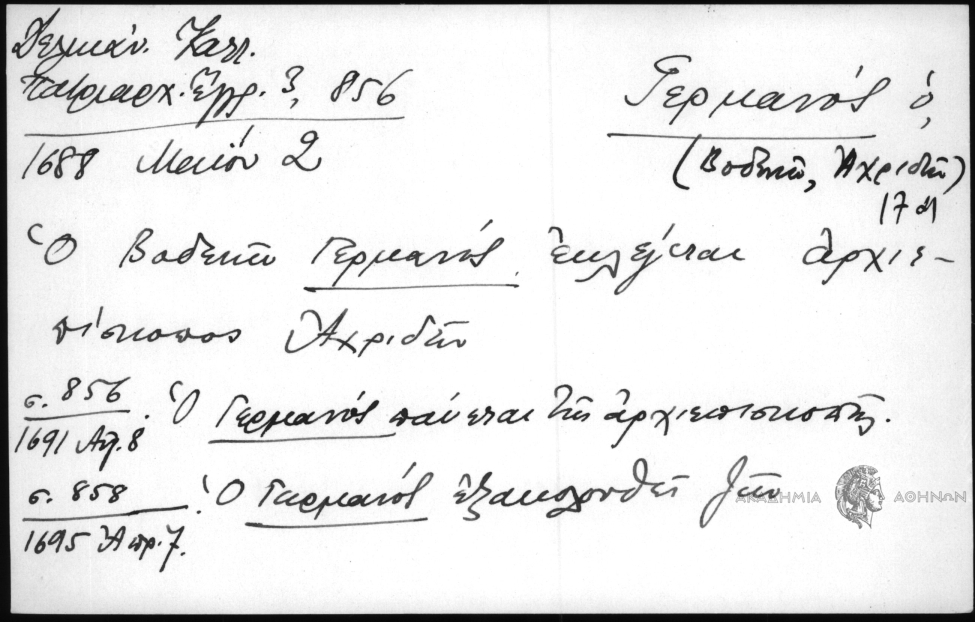 Δελικάν. Κατλ.
Πατριαρχ. Ἔγγρ. 3, 856
1688 Μαιόυ 2
Γερμανός ὁ,
(Βοδενῶν, Ἀχριδῶν)
17 αἰ
Ὁ Βοδενῶν Γερμανός ἐκλέγεται ἀρχιε-
πίσκοπος Ἀχριδῶν
σ. 856
1691 Ἀπ. 8
Ὁ Γερμανός παύεται τῆς ἀρχιεπισκοπῆς.
σ. 858
1695 Ἀπρ. 7.
Ὁ Γερμανός ἐξακολουθεῖ ζῶν
ΑΚΑΔΗΜΙΑ ΑΘΗΝΩΝ